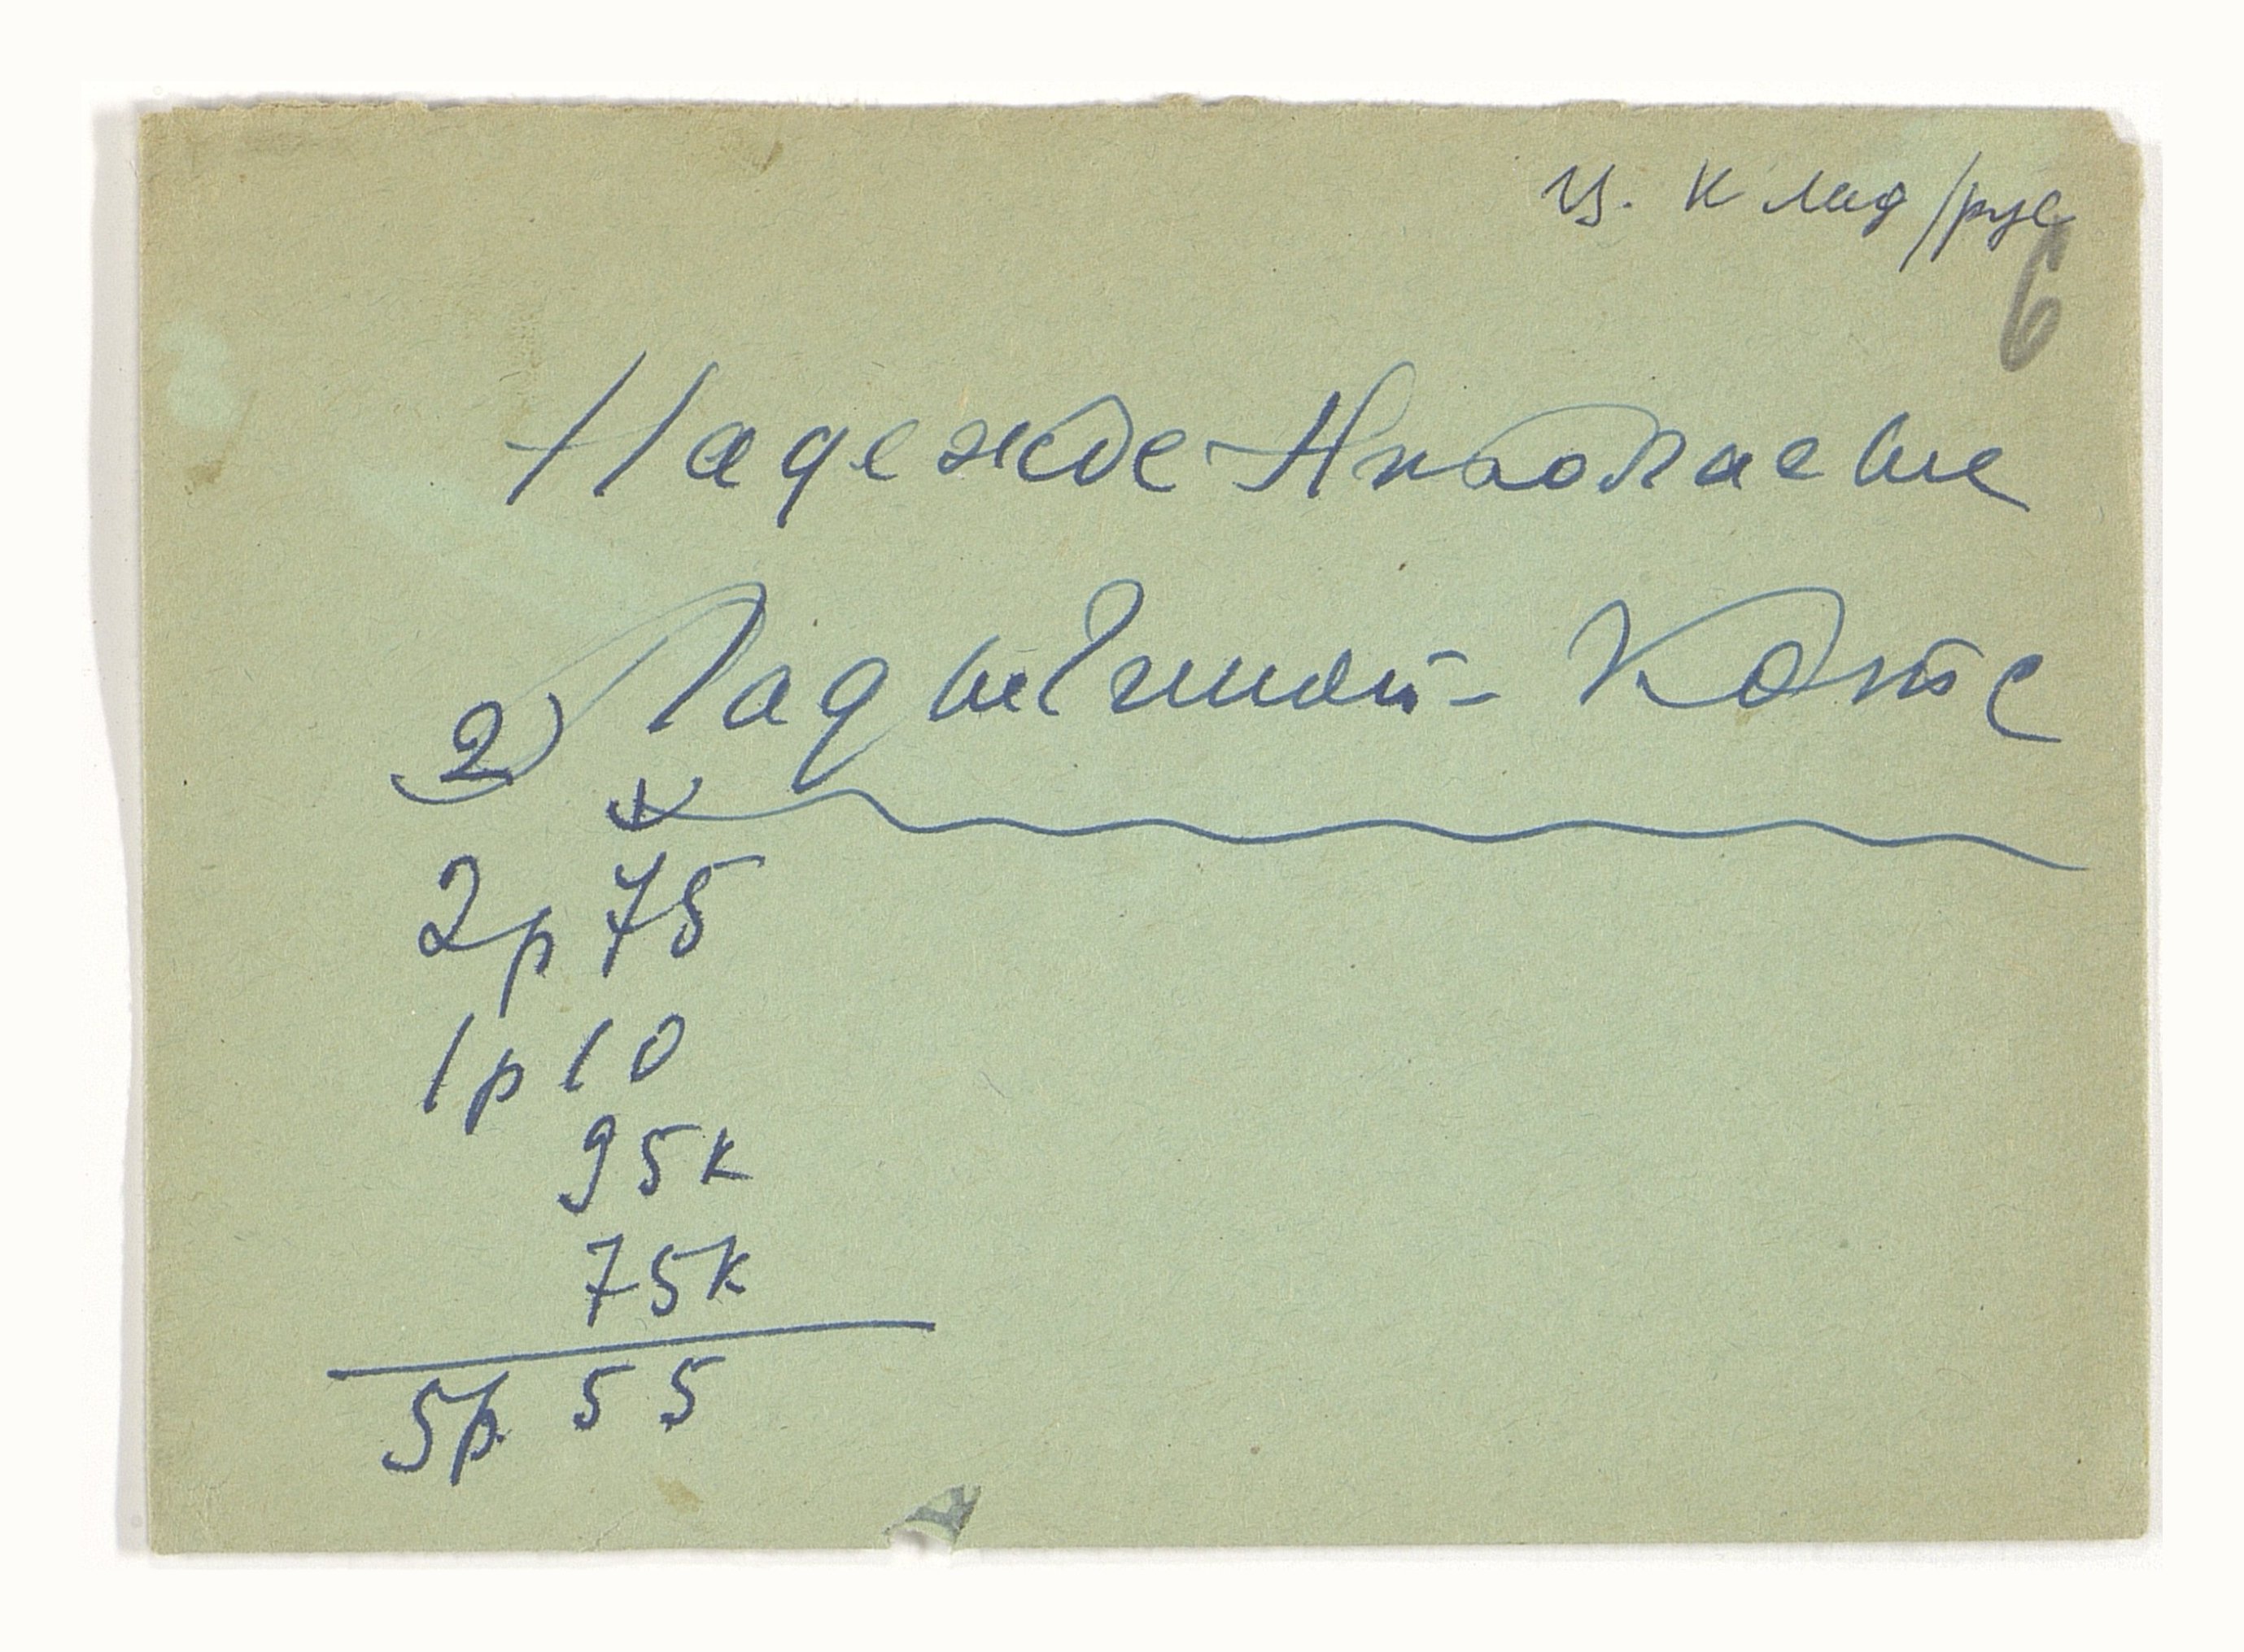 К Лад/рус
6
Надежде Николаевне
Ладыгиной - Котс
2)
2р 75
1р 10
95к
75к
5р. 55